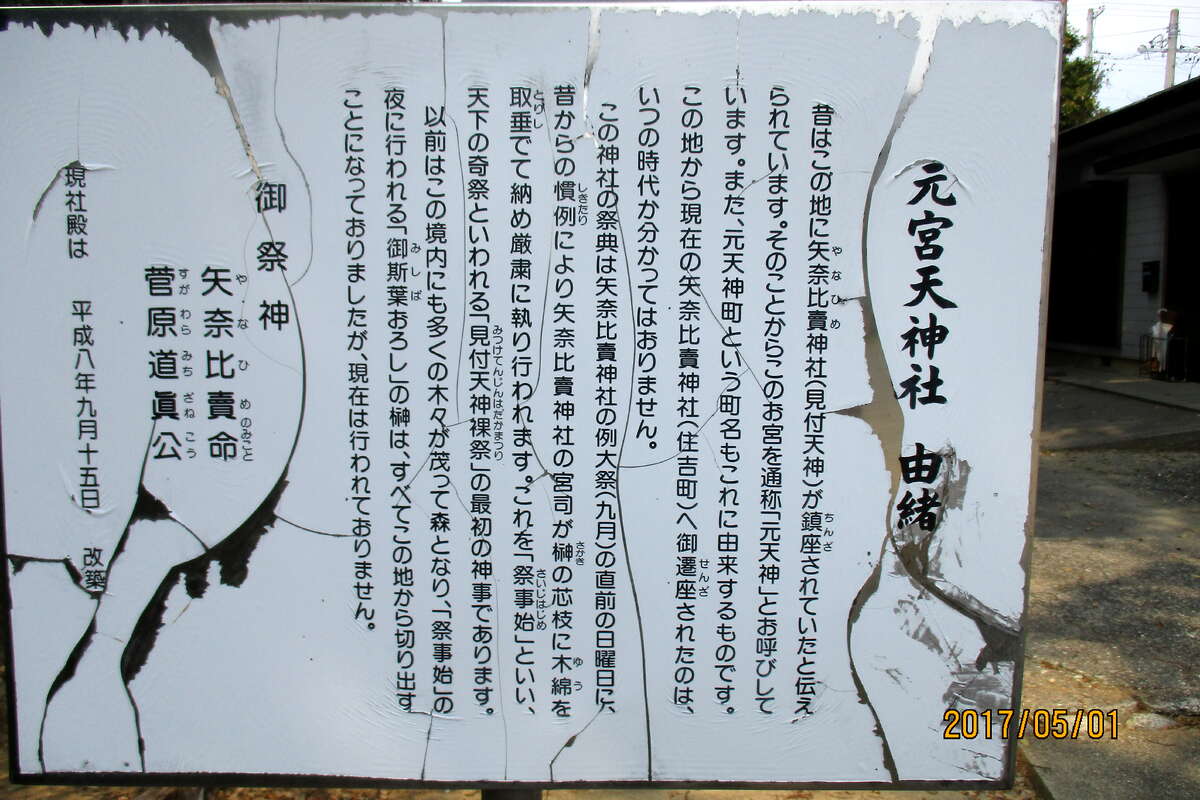 元宮天神社 由緒
昔はこの地に矢奈比賣神社(見付天神)が鎮座されていたと伝え
られています。そのことからこのお宮を通称「元天神」とお呼びして
います。また、元天神町という町名もこれに由来するものです。
この地から現在の矢奈比賣神社(住吉町)へ御遷座されたのは、
いつの時代か分かってはおりません。
この神社の祭典は矢奈比賣神社の例大祭(九月)の直前の日曜日に、
昔からの慣例により矢奈比賣神社の宮司が榊の芯枝に木綿を
取垂でて納め厳粛に執り行われます。これを「祭事始」といい、
天下の奇祭といわれる「見付天神裸祭」の最初の神事であります。
以前はこの境内にも多くの木々が茂って森となり、「祭事始」の
夜に行われる「御斯葉おろし」の榊は、すべてこの地から切り出す
ことになっておりましたが、現在は行われておりません。
御祭神
矢奈比賣命
菅原道眞公
現社殿は 平成八年九月十五日 改築
やなひめ
ちんざ
せんざ
しきたり
さかき
ゆう
とりし
さいじはじめ
みつけてんじんはだかまつり
みしば
やなひめのみこと
すがわらみちざねこう
2017/05/01